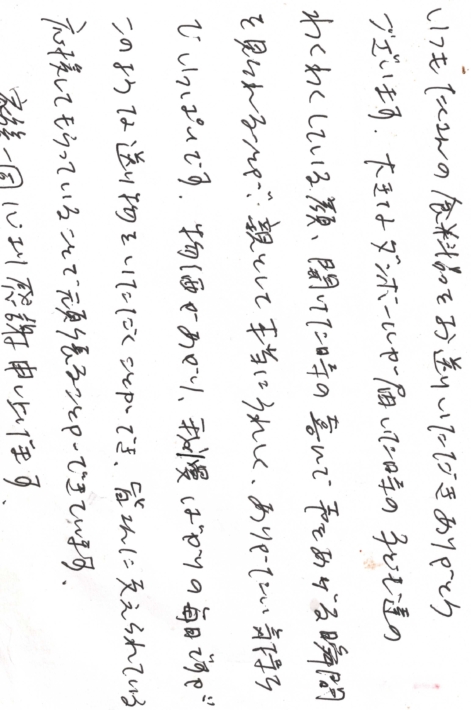 いつもたくさんの食料品をお送りいただきありがとう
ございます。大きなダンボールが届いた時の子ども達の
わくわくしている顔、開けた時の喜んで声をあげる瞬間
を見られることが、親として本当にうれしく、ありがたい気持ち
でいっぱいです。物価があがり、我慢ばかりの毎日ですが
このような送り物をいただくことができ、皆さんに支えられている
応援してもらっていることで頑張ることができています。
家族一同心より感謝申し上げます。